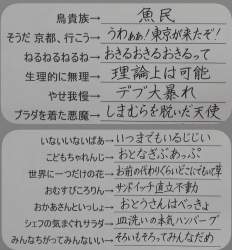 鳥貴族→ 魚民
そうだ 京都、行こう→ うわぁぁ!東京が来たぞ!
ねるねるねるね→ おきるおきるおきるって
生理的に無理→ 理論上は可能
やせ我慢→ デブ大暴れ
プラダを着た悪魔→ しまむらを脱いだ天使
いないいないばあ→ いつまでもいるじじい
こどもちゃれんじ→ おとなぎぶあっぷ
世界に一つだけの花→ お前の代わりくらいどこにでもいる草
おむすびころりん→ サンドイッチ直立不動
おかあさんといっしょ→ おとうさんはべっきょ
シェフの気まぐれサラダ→ 皿洗いの本気ハンバーグ
みんなちがってみんないい→ そろいもそろってみんなだめ